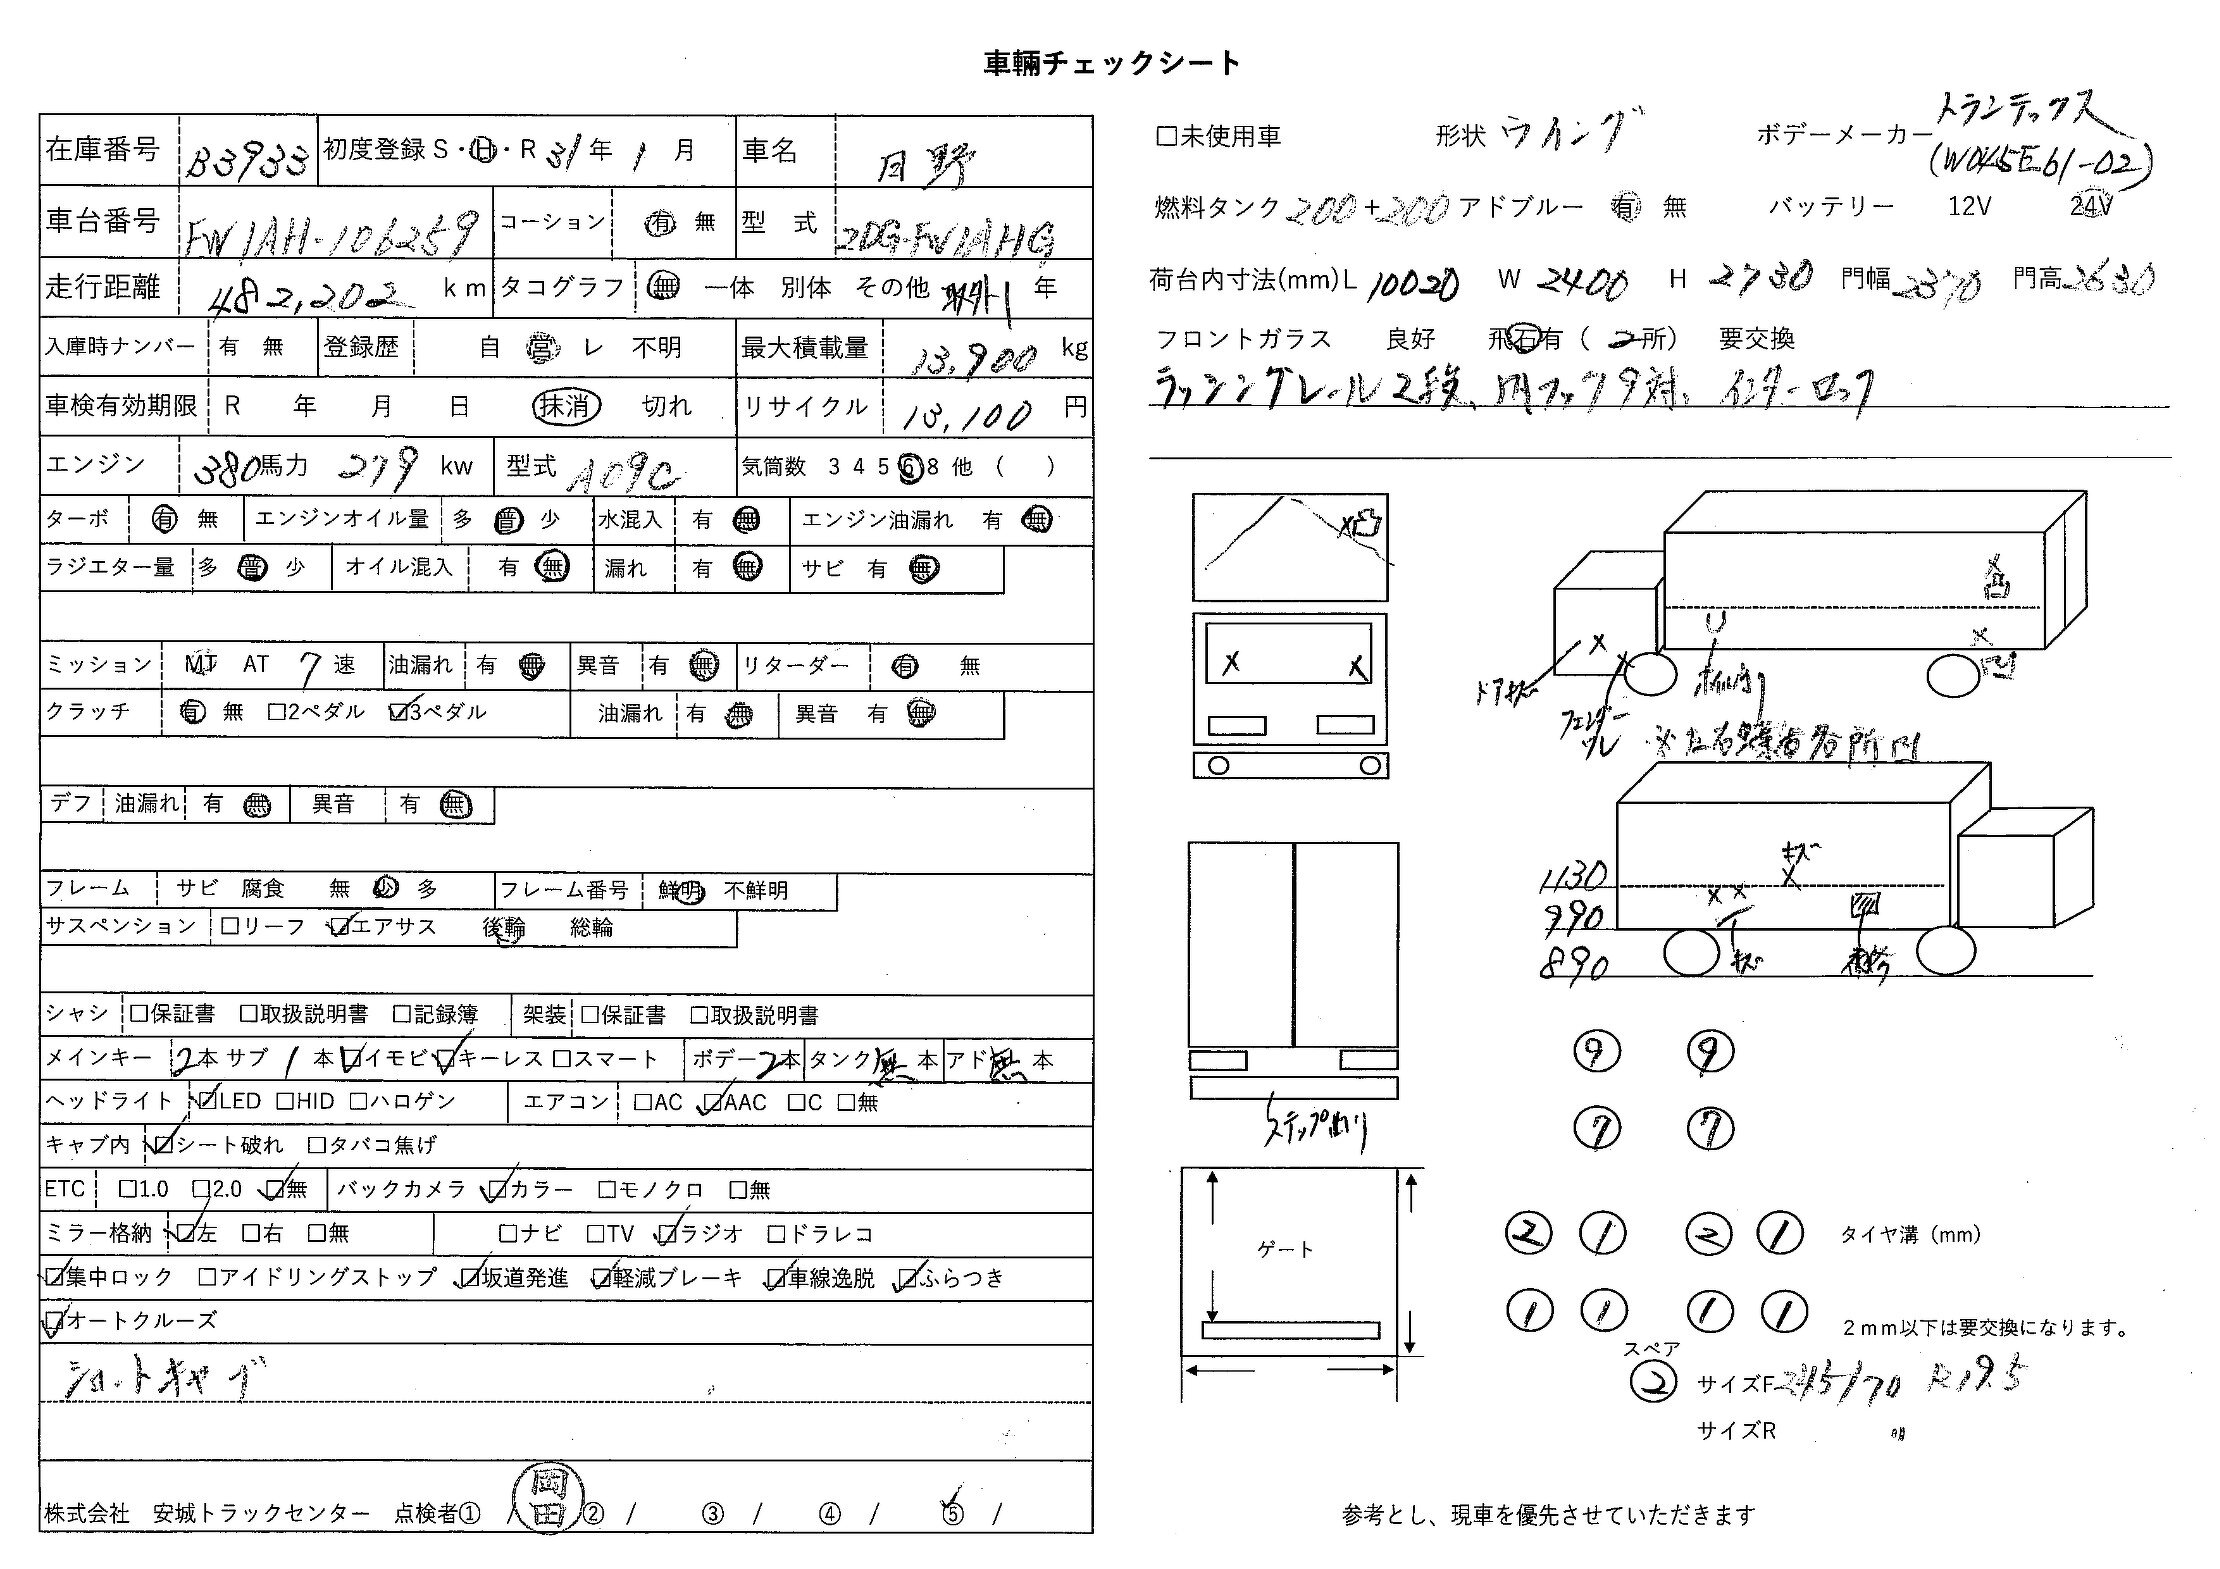 車輛チェックシート
在庫番号 B3933 初度登録 S・H・R 31年 1月 車名 日野
車台番号 FW1AH-106259 コーション 有 無 型 式 2DG-FW1AHG
走行距離 482,202 km タコグラフ 無 一体 別体 その他 年
入庫時ナンバー 有 無 登録歴 自 営 レ 不明 最大積載量 13,900 kg
車検有効期限 R 年 月 日 抹消 切れ リサイクル 13,100 円
エンジン 380馬力 279 kw 型式 A09C 気筒数 3 4 5 6 8 他 ( )
ターボ 有 無 エンジンオイル量 多 普 少 水混入 有 無 エンジン油漏れ 有 無
ラジエター量 多 普 少 オイル混入 有 無 漏れ 有 無 サビ 有 無
ミッション MT AT 7速 油漏れ 有 無 異音 有 無 リターダー 有 無
クラッチ 有 無 □2ペダル ☑3ペダル 油漏れ 有 無 異音 有 無
デフ 油漏れ 有 無 異音 有 無
フレーム サビ 腐食 無 少 多 フレーム番号 鮮明 不鮮明
サスペンション □リーフ ☑エアサス 後輪 総輪
シャシ □保証書 □取扱説明書 □記録簿 架装 □保証書 □取扱説明書
メインキー 2本 サブ 1本 ☑イモビ ☑キーレス □スマート ボデー2本 タンク無本 アド無本
ヘッドライト ☑LED □HID □ハロゲン エアコン □AC ☑AAC □C □無
キャブ内 ☑シート破れ □タバコ焦げ
ETC □1.0 □2.0 ☑無 バックカメラ ☑カラー □モノクロ □無
ミラー格納 ☑左 □右 □無 □ナビ □TV ☑ラジオ □ドラレコ
☑集中ロック □アイドリングストップ ☑坂道発進 ☑軽減ブレーキ ☑車線逸脱 ☑ふらつき
☑オートクルーズ
ショートキャブ
株式会社 安城トラックセンター 点検者① / 岡田 ② / ③ / ④ / ⑤ /
□未使用車 形状 ウイング ボデーメーカー トランテックス
(W045E61-02)
燃料タンク 200+200 アドブルー 有 無 バッテリー 12V 24V
荷台内寸法(mm)L 10020 W 2400 H 2730 門幅 2370 門高 2630
フロントガラス 良好 飛石有 ( 2所) 要交換
ラッシングレール2段、内フック9対、インターロック
凹
×
凹
× ×
ドアキズ
フェンダー
ワレ
1130
990
890
キズ
キズ
補修
ステップ曲り
⑨ ⑨
⑦ ⑦
② ① ② ① タイヤ溝(mm)
① ① ① ① 2mm以下は要交換になります。
スペア
② サイズF 245/70 R19.5
サイズR 〃
ゲート
参考とし、現車を優先させていただきます